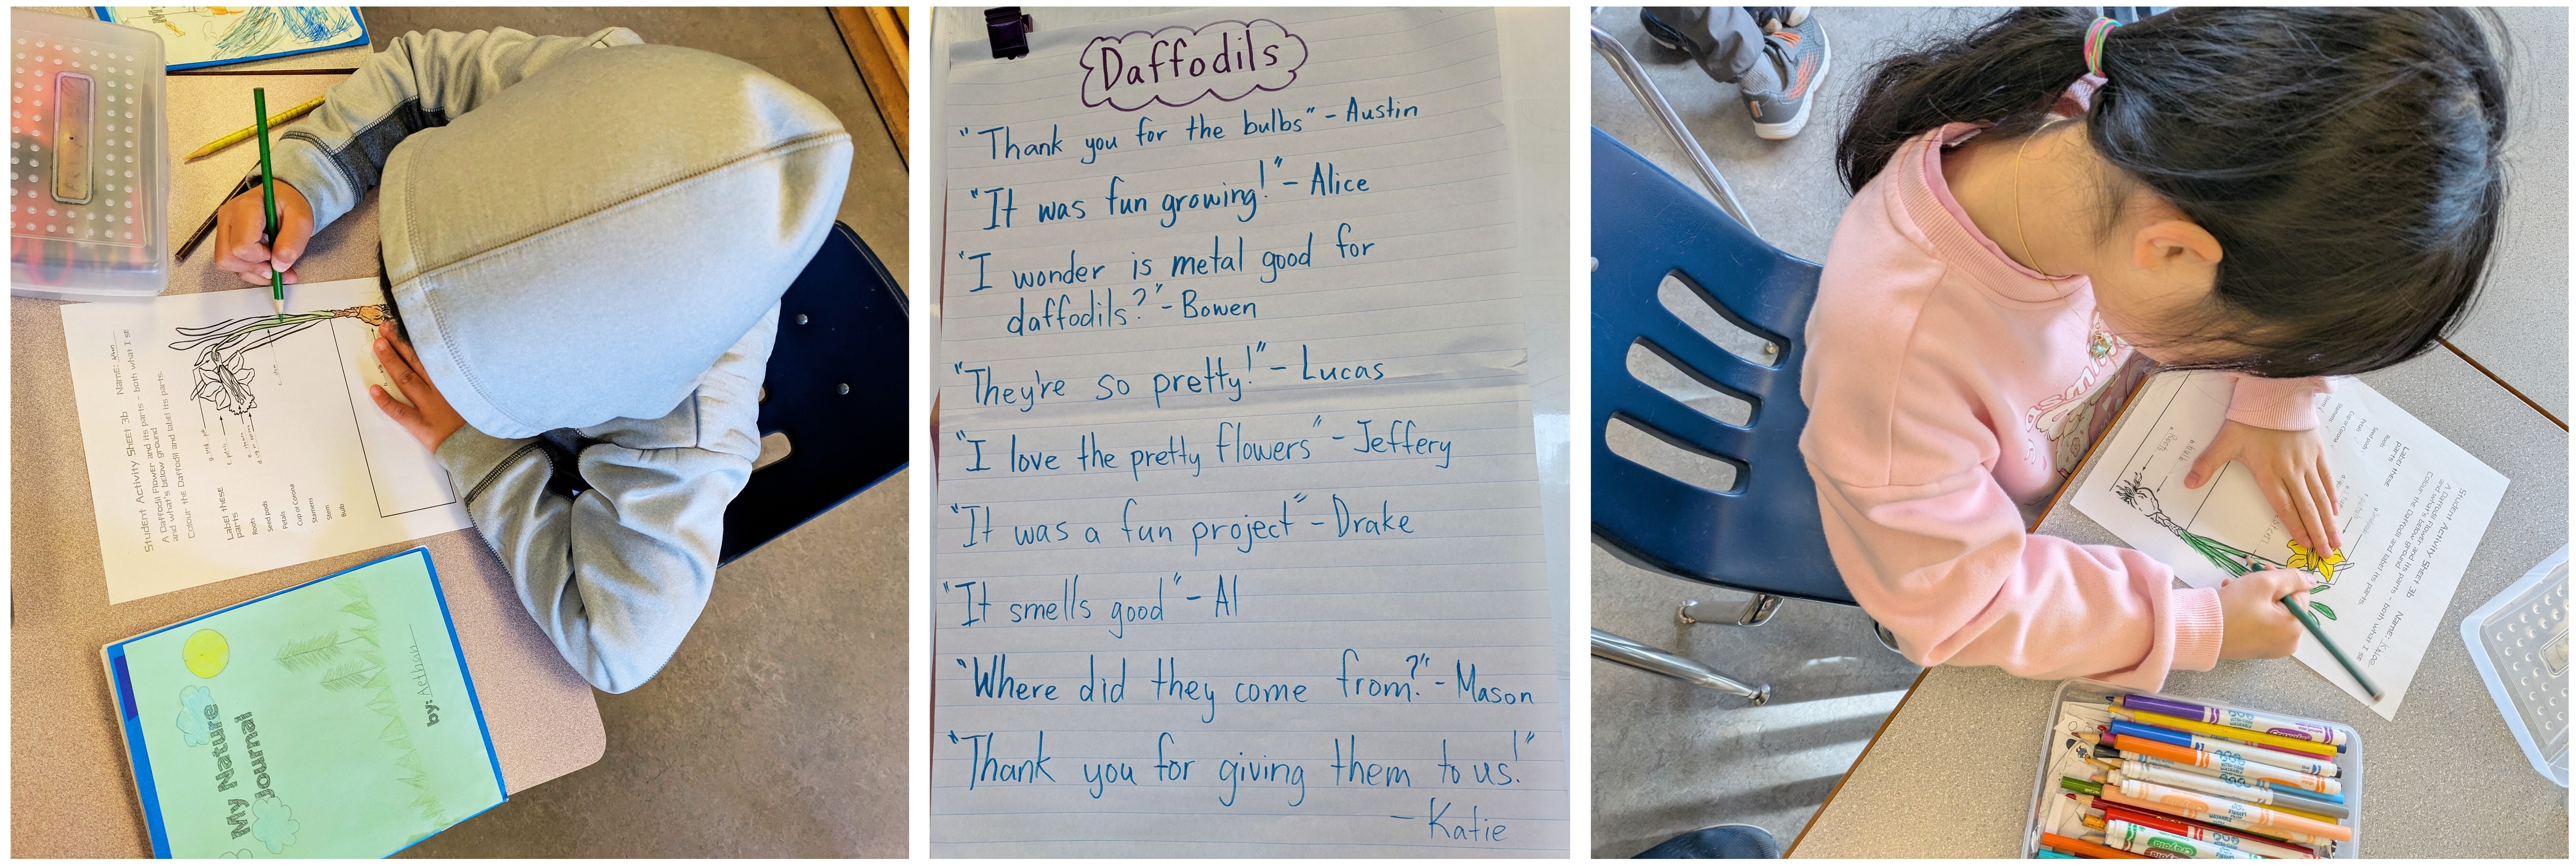 Student Activity Sheet 3b Name:
A Daffodil Flower and its parts - both what I se
and what's below ground
Colour the Daffodil and label its parts.
Label these
parts
Roots
Seed pods
Petals
Cup or Corona
Stamens
Stem
Bulb
My Nature
Journal
by: Aethan
Daffodils
"Thank you for the bulbs" - Austin
"It was fun growing!" - Alice
"I wonder is metal good for
daffodils?" - Bowen
"They're so pretty!" - Lucas
"I love the pretty flowers" - Jeffery
"It was a fun project" - Drake
"It smells good" - Al
"Where did they come from?" - Mason
"Thank you for giving them to us!"
- Katie
Student Activity Sheet 3b Name:
A Daffodil Flower and its parts - both what I se
and what's below ground
Colour the Daffodil and label its parts.
Label these
parts
Roots
Seed pods
Petals
Cup or Corona
Stamens
a. Roots
b. bulb
Crayola
Crayola